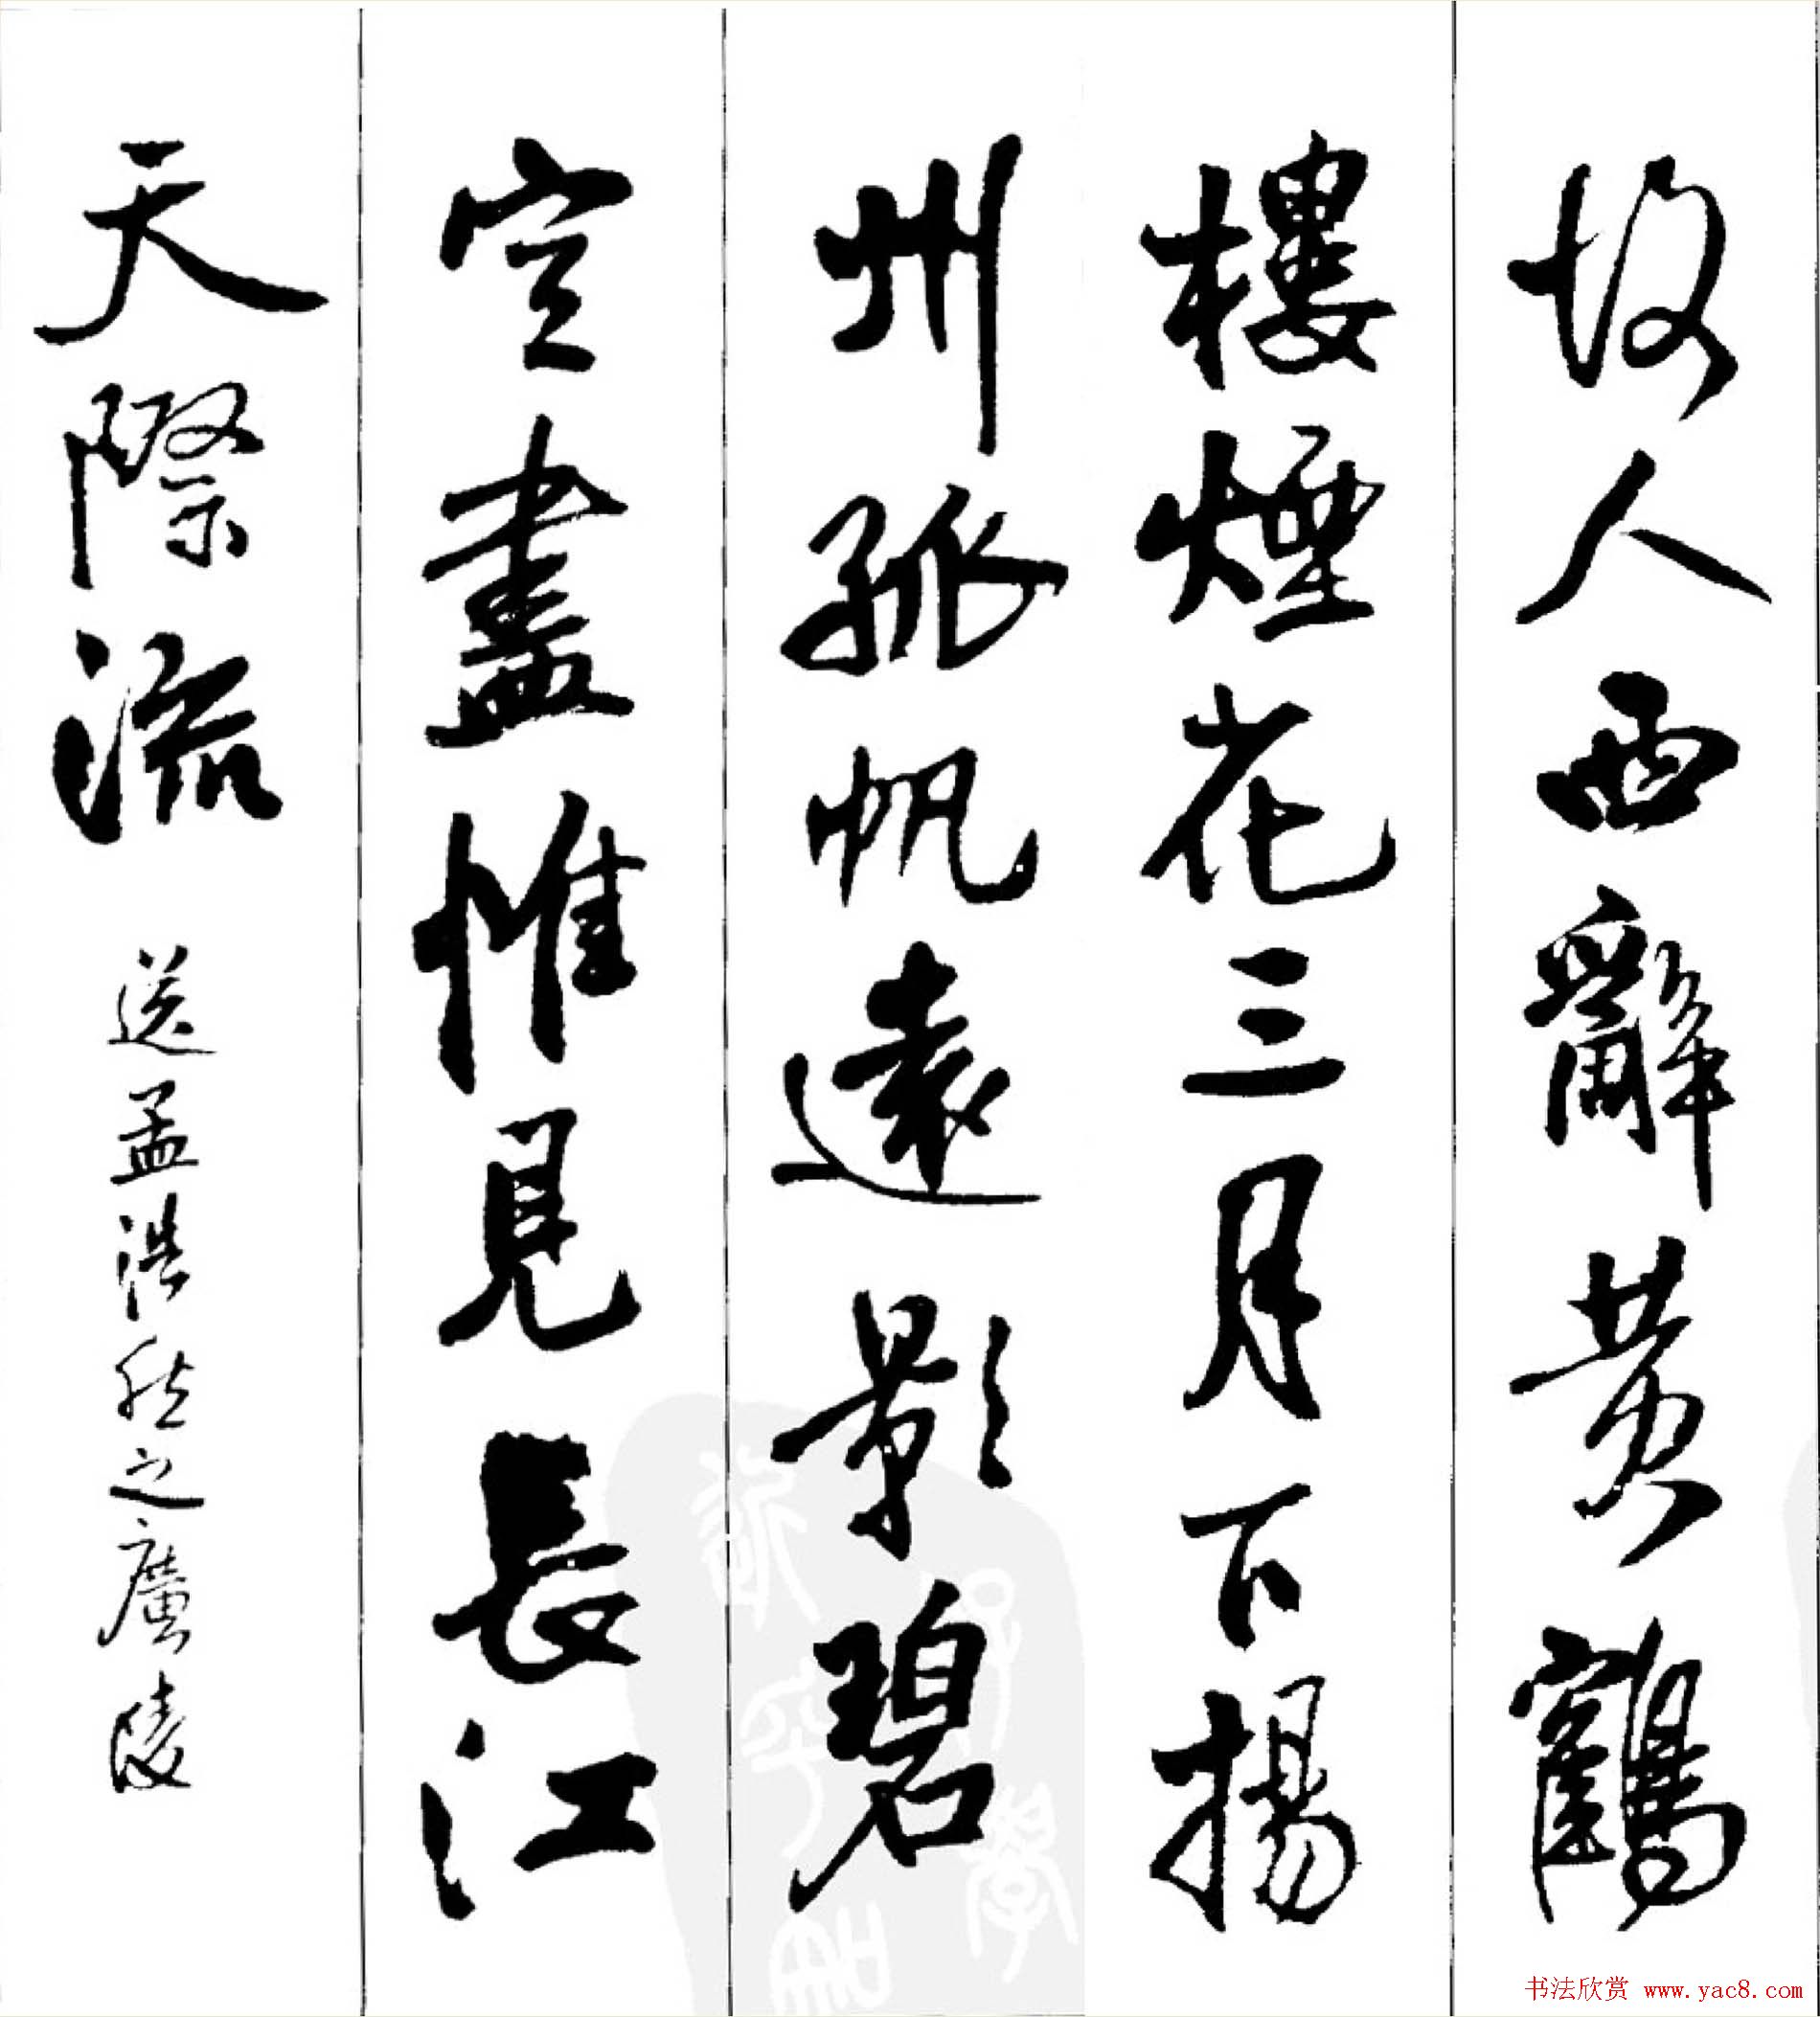 故人西辭黄鶴
樓煙花三月下揚
州孤帆遠影碧
空盡惟見長江
天際流 送孟浩然之廣陵
书法欣赏 www.yac8.com